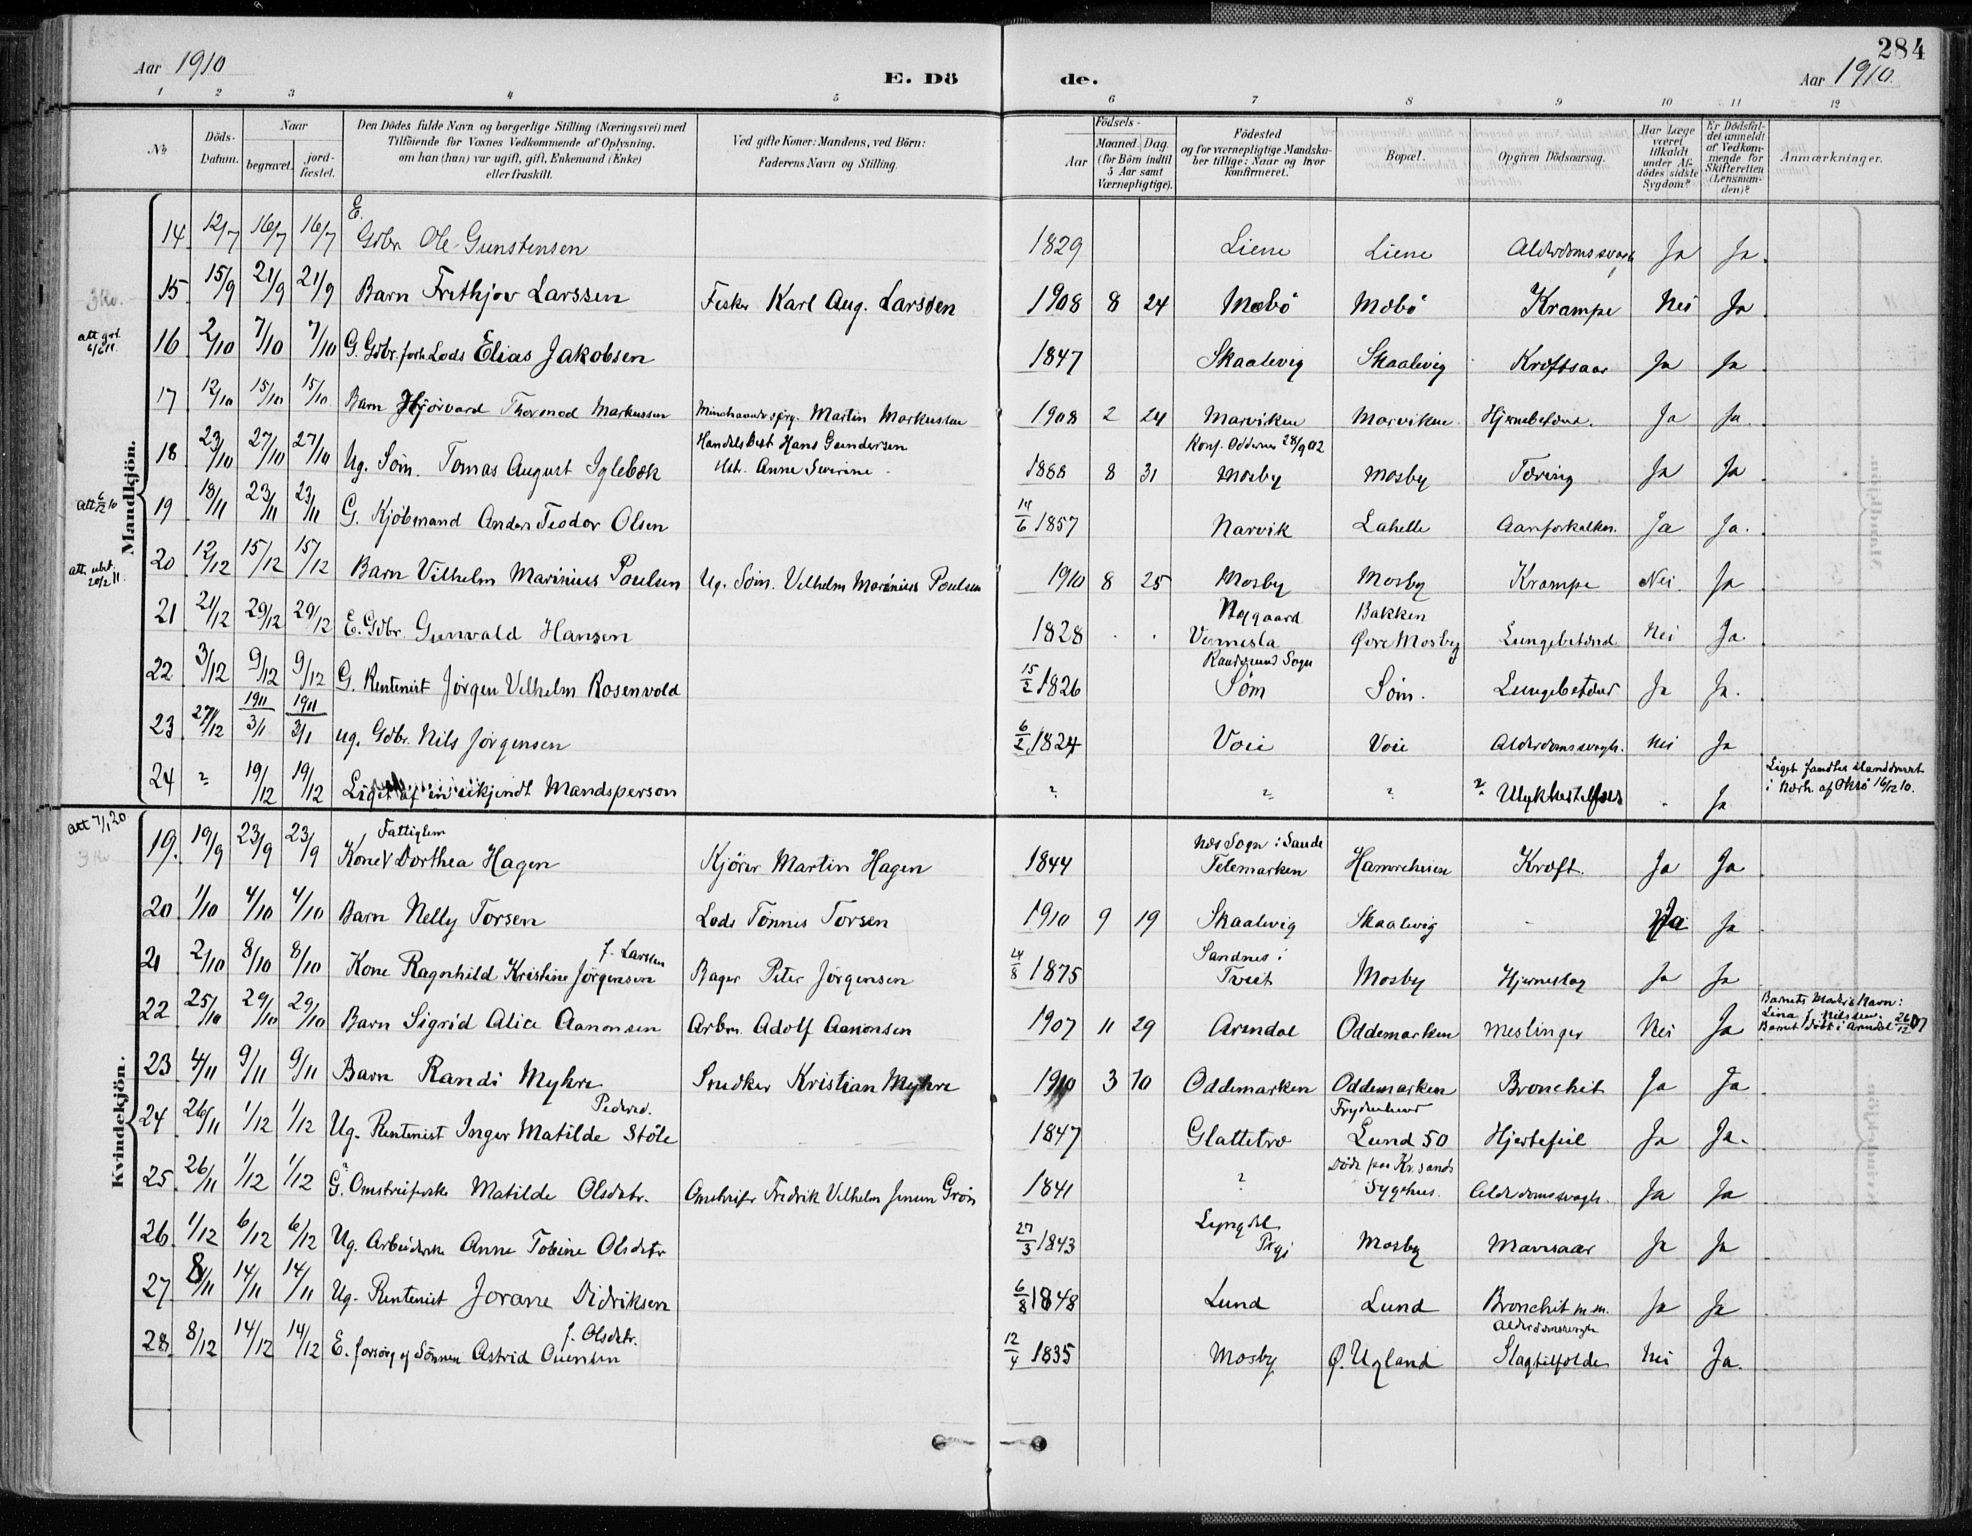 284
Aar 1910
E. Dö de.
Aar 1910.
1 2 3 4 5 6 7 8 9 10 11 12
No
Döds-Datum.
Naar
begravet.
jord-fæstet.
Den Dödes fulde Navn og borgerlige Stilling (Næringsvei) med
Tilföiende for Voxnes Vedkommende af Oplysning,
om han (hun) var ugift, gift, Enkemand (Enke)
eller fraskilt.
Ved gifte Koner: Mandens, ved Börn:
Faderens Navn og Stilling.
Födsels-
Aar
Maaned. Dag.
(for Börn indtil 5 Aar samt Værnepligtige).
Födested
og for værnepligtige Mandskaber tillige: Naar og hvor konfirmeret.
Bopæl.
Opgiven Dödsaarsag.
Har Læge været tilkaldt under Afdödes sidste Sygdom?
Er Dödsfaldet anmeldt af Vedkommende for Skifteretten (Lensmanden)?
Anmærkninger.
Mandkjön.
14 12/7 16/7 16/7 E. Gdbr. Ole Gunstensen 1829 Liene Liene Alderdomssvagh Ja Ja.
3 Kr.
15 15/9 21/9 21/9 Barn Frithjov Larssen Fisker Karl Aug. Larssen 1908 8 24 Mæbö Mæbö Krampe Nei Ja
16 2/10 7/10 7/10 G. Gdbr. forh. Lods Elias Jakobsen 1847 Skaalevig Skaalevig Kræftsaar Ja Ja
17 12/10 15/10 15/10 Barn Hjörvard Thormod Markussen Martin Markussen 1908 2 24 Marviken Marviken Hjernebetænd. Ja Ja.
18 23/10 27/10 27/10 Ug. Söm. Tomas August Iglebæk Handelsbest Hans Gundersen
Hst. Anne Severine 1888 8 31 Konf. Oddernes 28/9 02
Mosby Mosby Tæring Ja Ja
19 18/11 23/11 23/11 G. Kjöbmand Anders Teodor Olsen 14/6 1857 Narvik Lahelle Aareforkalkn. Ja Ja.
att. utst. 20/2 11.
20 12/12 15/12 15/12 Barn Vilhelm Marinius Poulsen Ug. Söm. Vilhelm Marinius Poulsen 1910 8 25 Mosby Mosby Krampe Nei. Ja
21 21/12 29/12 29/12 E. Gdbr. Gunvald Hansen 1828 Nygaard
Vennesla Bakken
Øvre Mosby Lungebetænd. Nei Ja.
22 3/12 9/12 9/12 G. Rentenist Jörgen Vilhelm Rosenvold 15/2 1826 Randesund Sogn
Söm Söm. Lungebetænd Ja Ja.
23 27/12 1911 3/1 1911 3/1 ug. Gdbr. Nils Jörgensen 6/2 1824 Voie Voie Alderdomssvagh. Nei Ja
24 ? 19/12 19/12 Liget af en ukjendt Mandsperson ? ? ? ? Ulykkestilfælde - Ja Liget fandtes
i Nærh. af Oksö 16/12 10.
Kvindekjön.
att 7/1 20
3 Kr
19. 19/9 23/9 23/9 Fattiglem
Kone Dorthea Hagen Kjörer Martin Hagen 1844 Næs Sogn i Saude
Telemarken Hamrehusene Kræft. Ja Ja
20 1/10 4/10 4/10 Barn Nelly Torsen Lods Tönnes Torsen 1910 9 19 Skaalevig Skaalevig - Ja Ja
21 2/10 8/10 8/10 f. Larsen
Kone Ragnhild Kristine Jörgensen Bager Peter Jörgensen 24/8 1875 Sandnes i
Tveit Mosby Hjerneslag Ja Ja
22 25/10 29/10 29/10 Barn Sigrid Alice Aanonsen Arbm. Adolf Aanonsen 1907 11 29 Arendal Oddemarken Meslinger Nei Ja Barnets Moders Navn:
Lina f. Nilssen.
Barnet döbt i Arendal 26/12 07
23 4/11 9/11 9/11 Barn Randi Myhre Snedker Kristian Myhre 1910 3 10 Oddemarken Oddemarken Bronchit Ja Ja
24 26/11 1/12 1/12 Pedersd.
Ug. Rentenist Inger Matilde Stöle 1847 Glattetre
Lund 50 Hjertefeil Ja Ja.
25 26/11 1/12 1/12 G. Omstreiferske Matilde Olsdatr. Omstreifer Fredrik Vilhelm Jensen Grön 1841 ? Döde paa Kr.sands
Sygehus. Alderdomssvagh. Ja Ja
26 1/12 6/12 6/12 Ug. Arbeiderske Anne Tobine Olsdatr 27/3 1843 Lyngdal
Mosby Mavesaar Ja Ja
27 8/11 14/11 14/11 Ug. Rentenist Jorane Didriksen 6/8 1848 Lund Lund Bronchit m.m. Ja Ja
28. 8/12 14/12 14/12 f. Olsdatr.
E. forsörg. af Sönnen Astrid Ouensen 12/4 1835 Mosby Ø. Ugland Alderdomssvagh
Slagtilfælde Nei Ja.